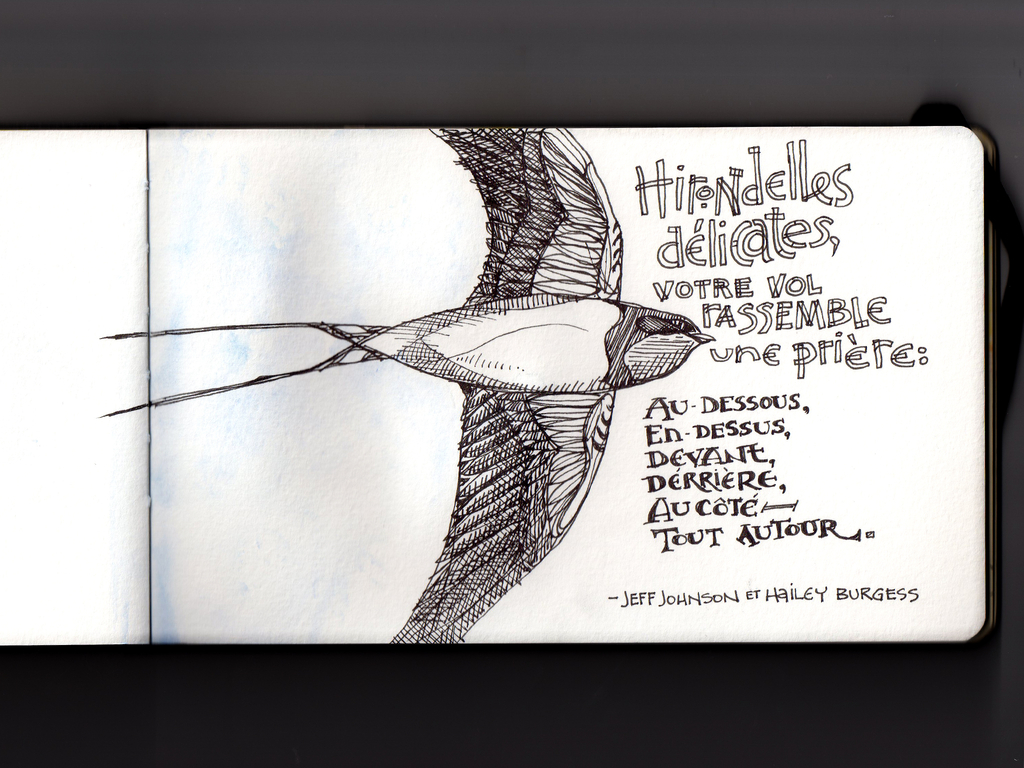 Hirondelles
délicates,
VOTRE VOL
rASSEMBLE
une prière:
AU-DESSOUS,
En-DESSUS,
DEVANT,
DERRIÈRE,
AU CÔTÉ—
TOUT AUTOUR.
-JEFF JOHNSON ET HAiLEY BURGESS